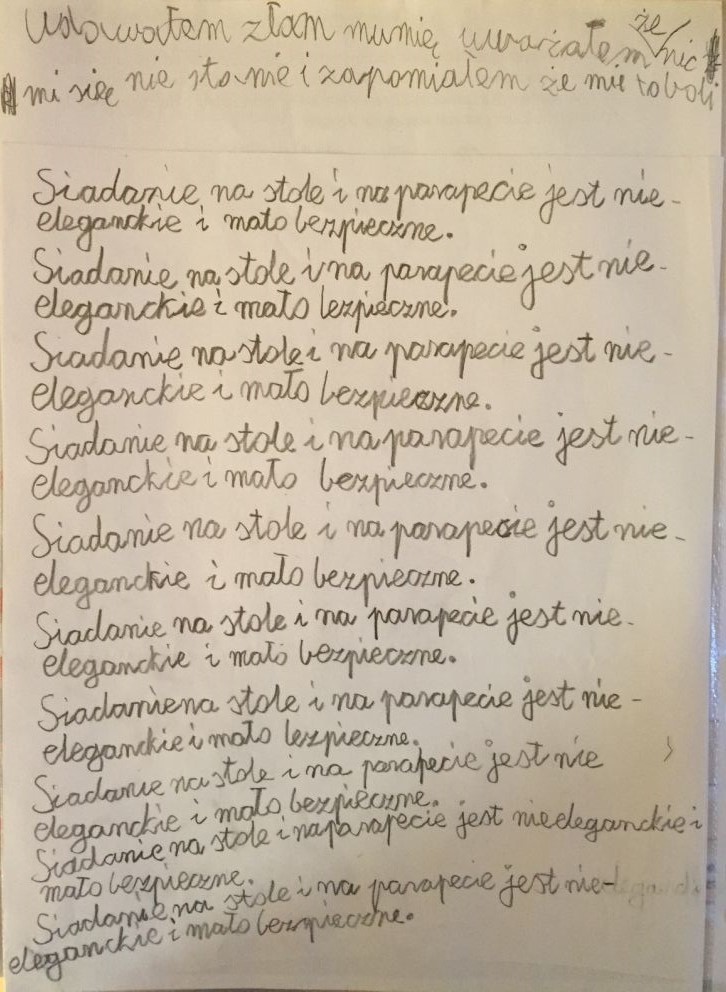 Udawałem złam mumię uważałem że nic
mi się nie stanie i zapomiałem że mu to boli
Siadanie na stole i na parapecie jest nie-
eleganckie i mało bezpieczne.
Siadanie na stole i na parapecie jest nie-
eleganckie i mało bezpieczne.
Siadanie na stole i na parapecie jest nie-
eleganckie i mało bezpieczne.
Siadanie na stole i na parapecie jest nie-
eleganckie i mało bezpieczne.
Siadanie na stole i na parapecie jest nie-
eleganckie i mało bezpieczne.
Siadanie na stole i na parapecie jest nie-
eleganckie i mało bezpieczne.
Siadanie na stole i na parapecie jest nie-
eleganckie i mało bezpieczne.
Siadanie na stole i na parapecie jest nie
eleganckie i mało bezpieczne.
Siadanie na stole i na parapecie jest nieeleganckie i
mało bezpieczne.
Siadanie na stole i na parapecie jest nie-
eleganckie i mało bezpieczne.